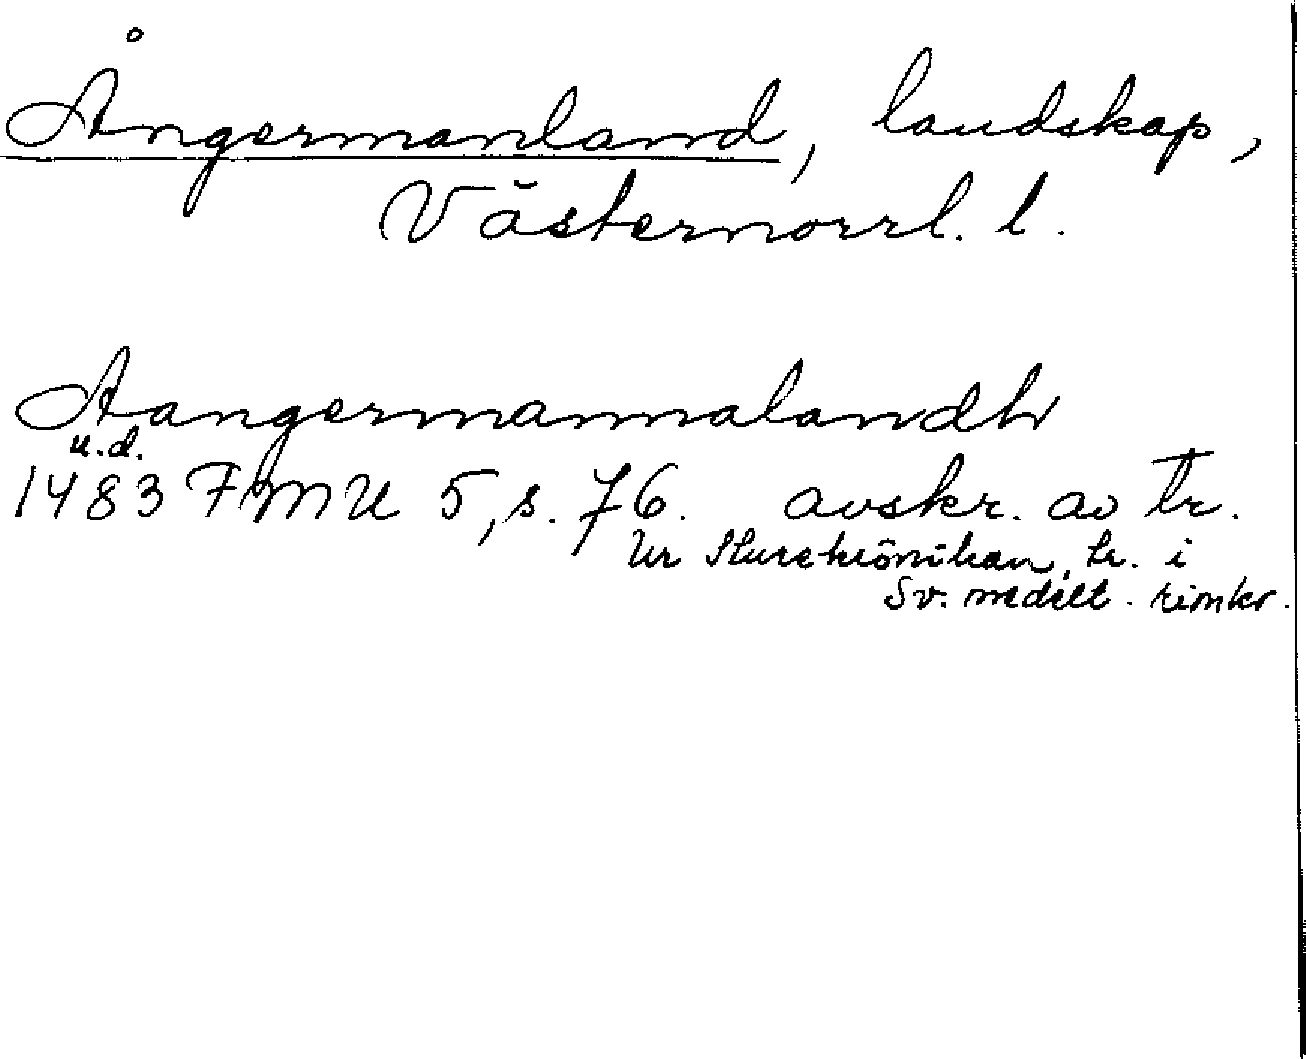 Ångermanland, landskap,
Västernorrl. l.
Aangermannalandh
u.d.
1483 FMU 5, s. 76. avskr. av tr.
Ur Sturekrönikan, tr. i
Sv. medelt. rimkr.